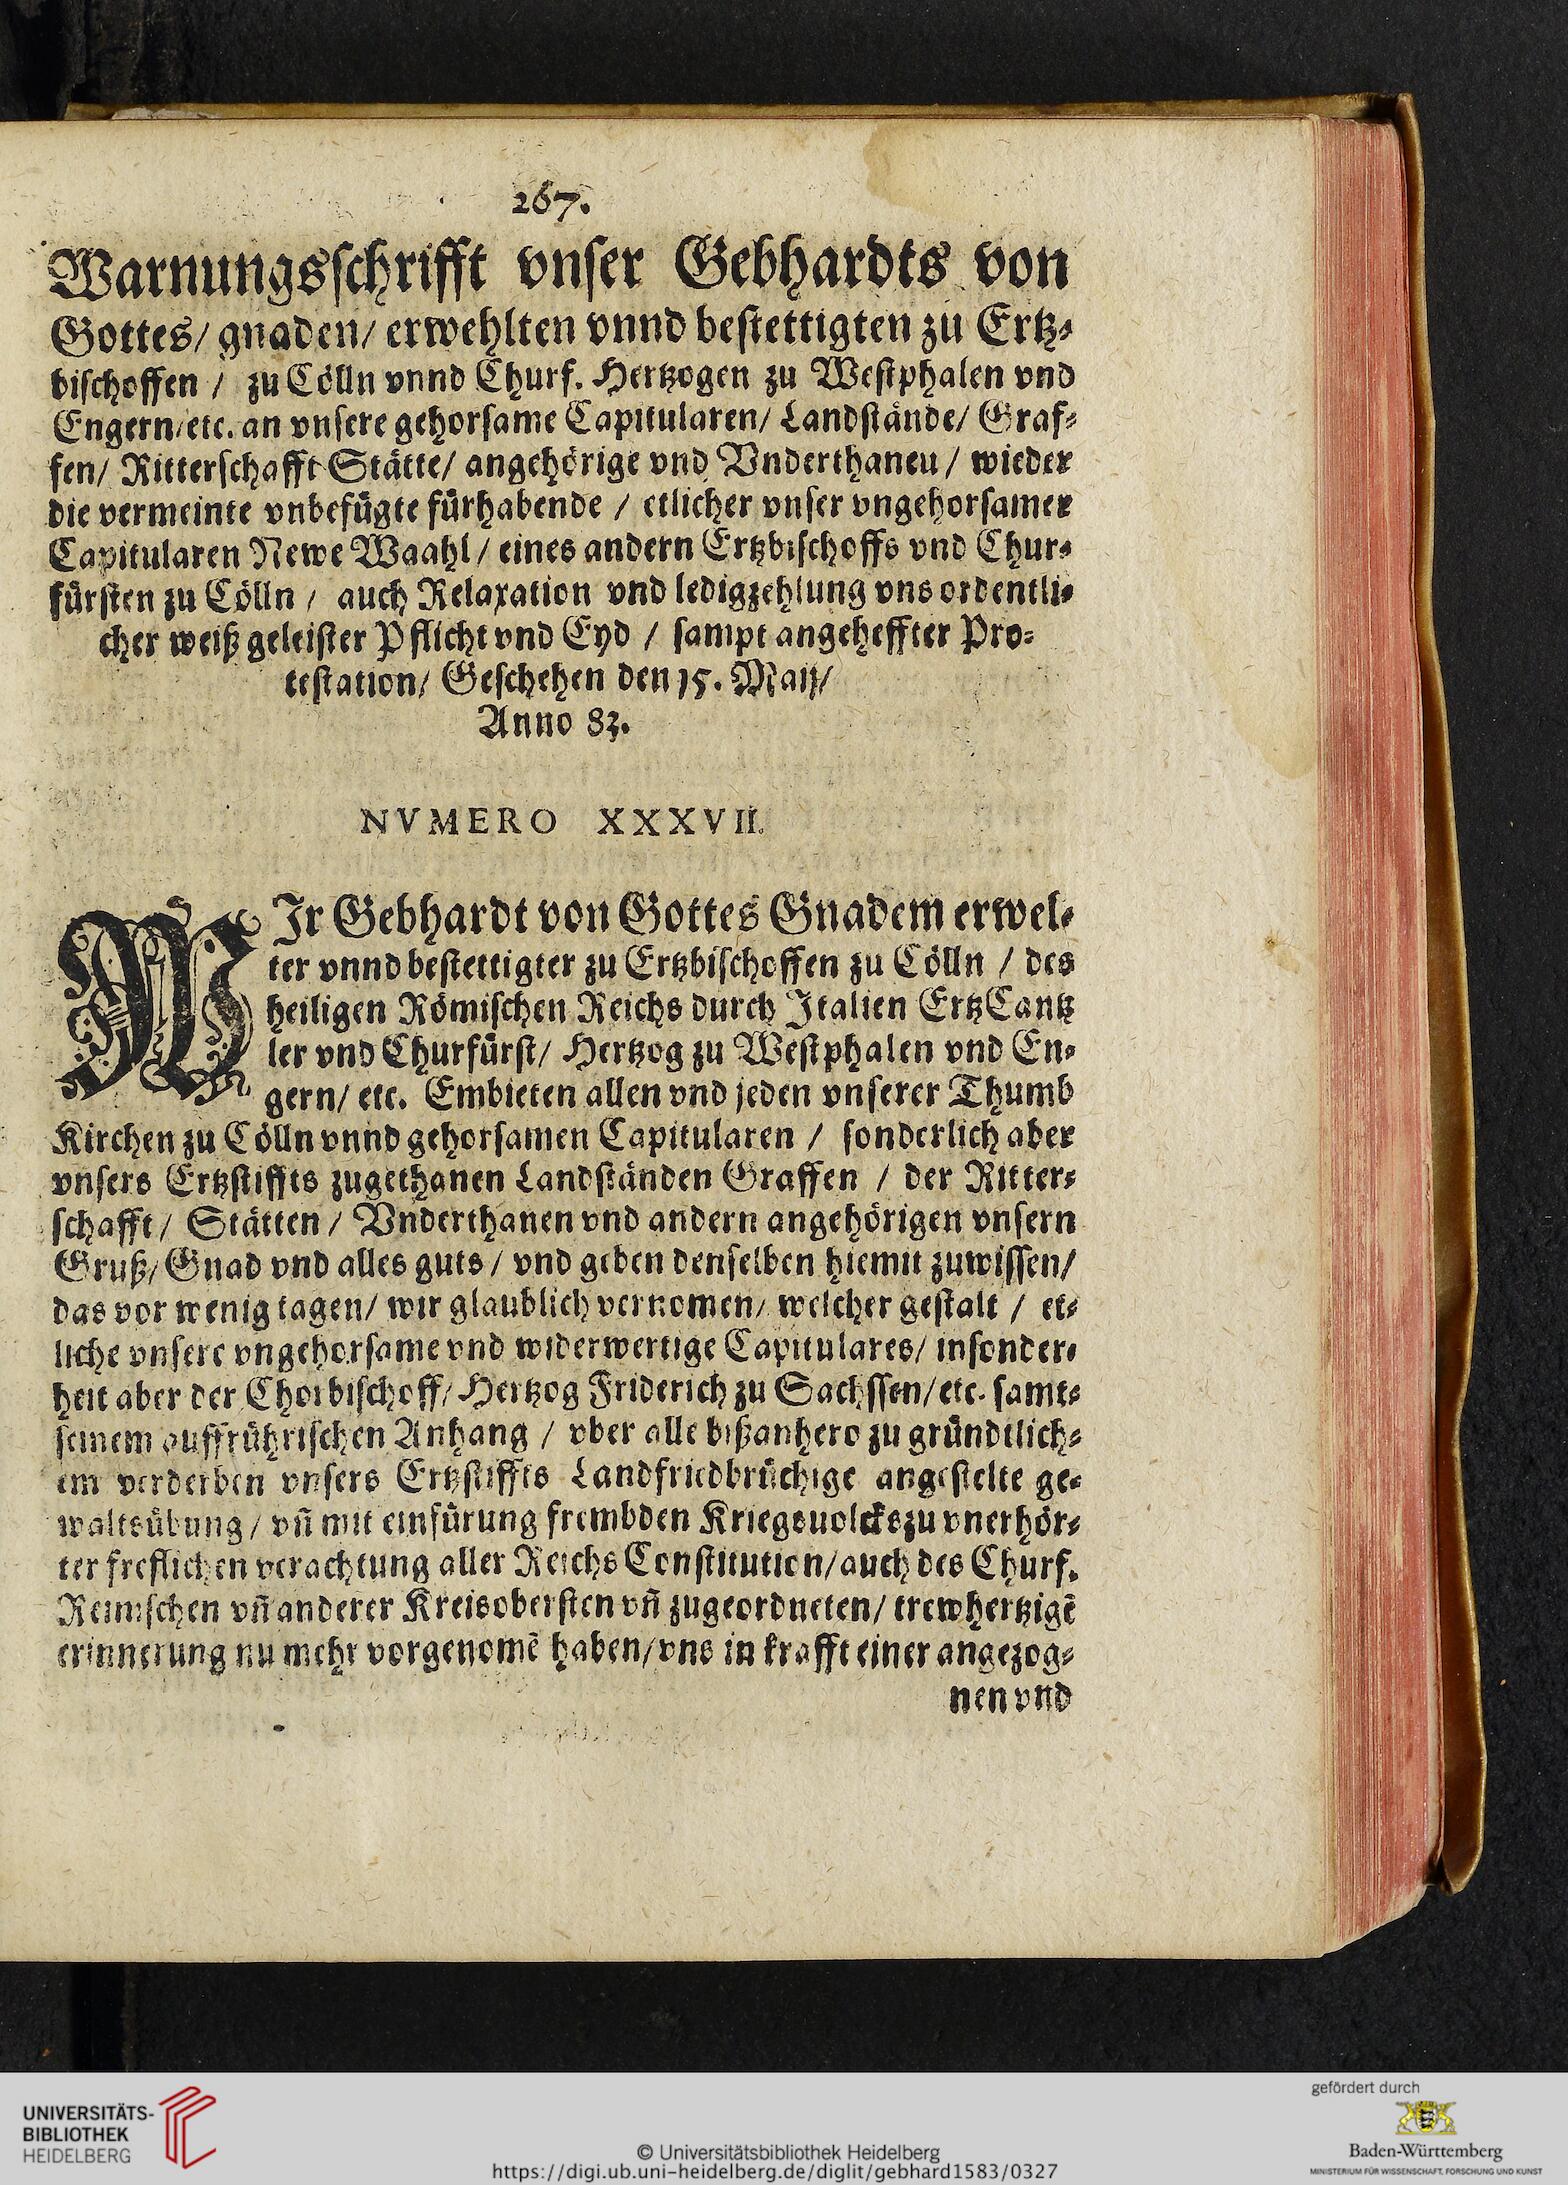 267.
Warnungsschrifft vnser Gebhardts von
Gottes/ gnaden/ erwehlten vnnd bestettigten zu Ertz-
bischoffen / zu Cölln vnnd Churf. Hertzogen zu Westphalen vnd
Engern/etc. an vnsere gehorsame Capitularen/ Landstände/ Graf-
fen/ Ritterschafft Stätte/ angehörige vnd Vnderthaneu / wieder
die vermeinte vnbefügte fürhabende / etlicher vnser vngehorsamer
Capitularen Newe Waahl / eines andern Ertzbischoffs vnd Chur-
fürsten zu Cölln / auch Relaxation vnd ledigzehlung vns ordentli-
cher weiß geleister Pflicht vnd Eyd / sampt angeheffter Pro-
testation/ Geschehen den 15. Maij/
Anno 83.
NVMERO XXXVII.
WIr Gebhardt von Gottes Gnadem erwel-
ter vnnd bestettigter zu Ertzbischoffen zu Cölln / des
heiligen Römischen Reichs durch Italien ErtzCantz
ler vnd Churfürst/ Hertzog zu Westphalen vnd En-
gern/ etc. Embieten allen vnd jeden vnserer Thumb
Kirchen zu Cölln vnnd gehorsamen Capitularen / sonderlich aber
vnsers Ertzstiffts zugethanen Landständen Graffen / der Ritter-
schafft/ Stätten / Vnderthanen vnd andern angehörigen vnsern
Gruß/ Gnad vnd alles guts / vnd geben denselben hiemit zuwissen/
das vor wenig tagen/ wir glaublich vernomen/ welcher gestalt / et-
liche vnsere vngehorsame vnd widerwertige Capitulares/ insonder-
heit aber der Chorbischoff/ Hertzog Friderich zu Sachssen/etc. samt-
seinem auffrührischen Anhang / vber alle bißanhero zu gründtlich-
em verderben vnsers Ertzstiffts Landfriedbrüchige angestelte ge-
waltsübung / vn̄ mit einfürung frembden Kriegsuolcks zu vnerhör-
ter freflichen verachtung aller Reichs Constitution/ auch des Churf.
Reinischen vn̄ anderer Kreisobersten vn̄ zugeordneten/ trewhertzigē
erinnerung nu mehr vorgenomē haben/ vns in krafft einer angezog-
nen vnd
UNIVERSITÄTS-
BIBLIOTHEK
HEIDELBERG
© Universitätsbibliothek Heidelberg
https://digi.ub.uni-heidelberg.de/diglit/gebhard1583/0327
gefördert durch
Baden-Württemberg
MINISTERIUM FÜR WISSENSCHAFT, FORSCHUNG UND KUNST